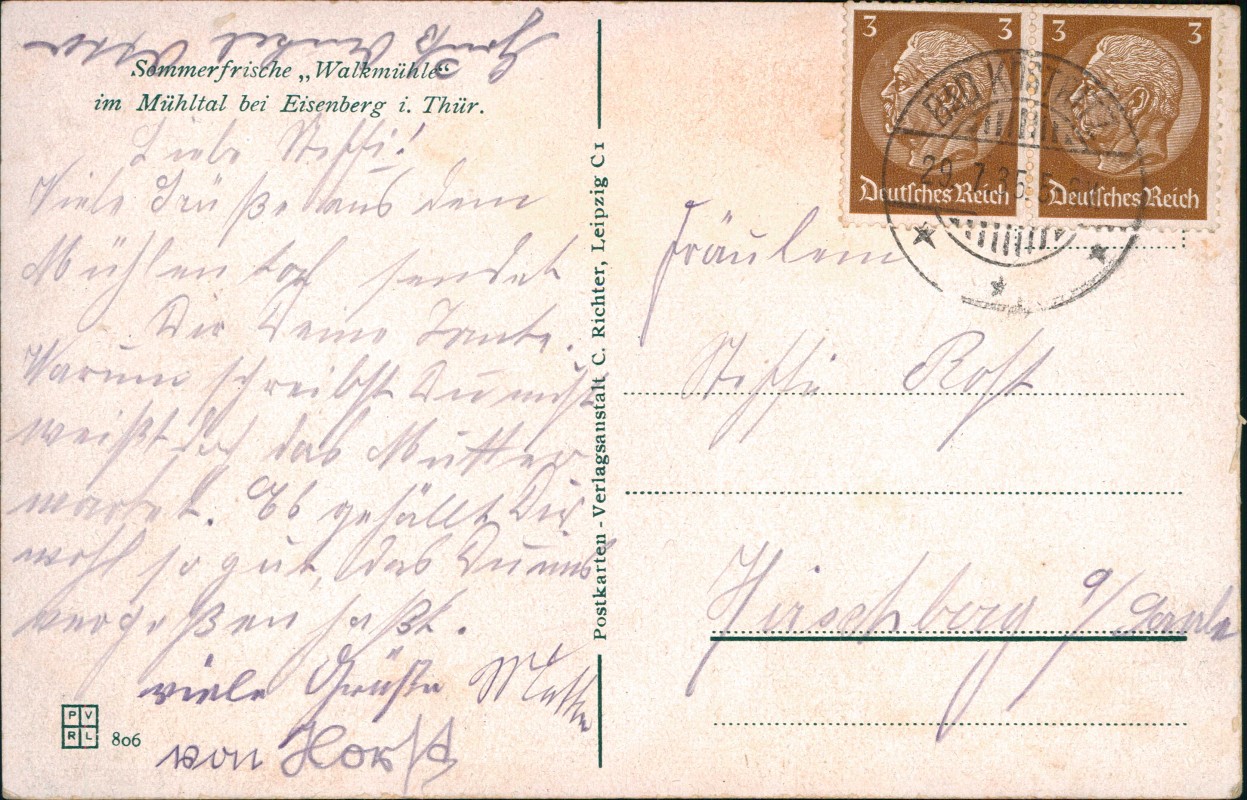 Gruß Onkel
Sommerfrische „Walkmühle“
im Mühltal bei Eisenberg i. Thür.
Liebe Steffi!
Viele Grüße aus dem
Mühlental sendet
Dir Deine Tante.
Warum schreibst Du nicht
weißt doch das Mutter
wartet. Es gefällt Dir
wohl so gut, das Du uns
vergeßen haßt.
viele Grüße Mutter
von Horst
PVRL 806
Postkarten - Verlagsanstalt C. Richter, Leipzig C1
3 3
Deutsches Reich
3 3
Deutsches Reich
BAD KÖSTRITZ
29.7.35.5
Fräulein
Steffi Rost
Hirschberg a/ Saale